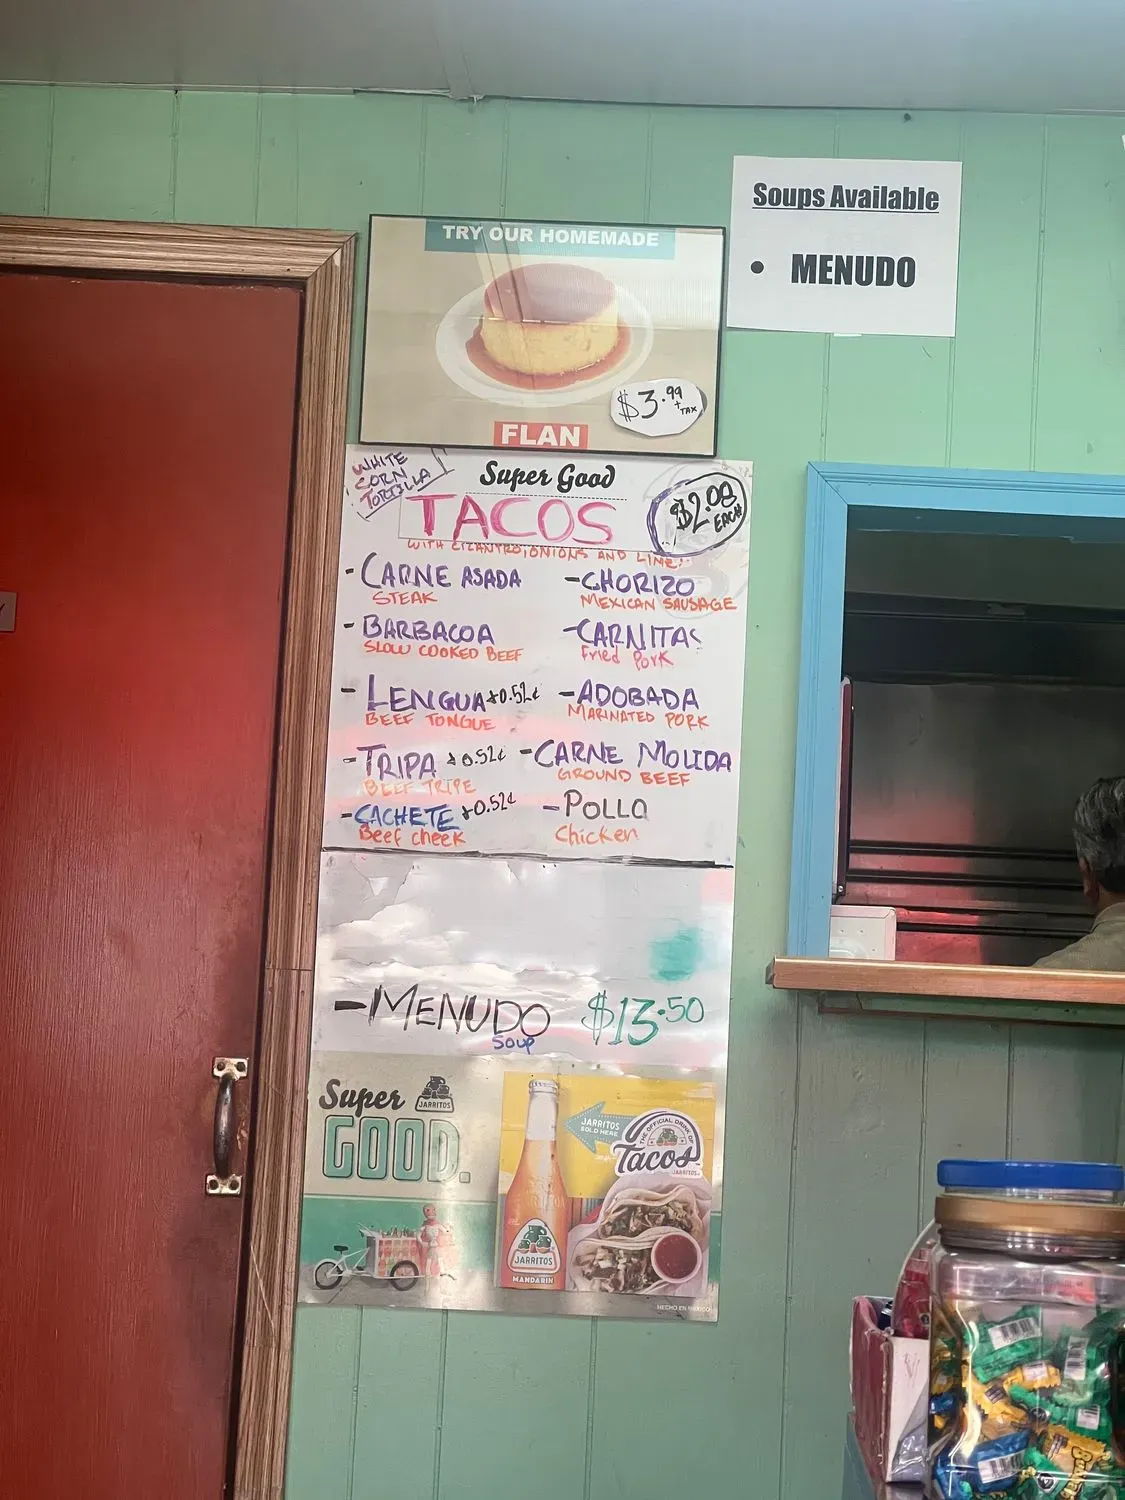 Soups Available
• MENUDO
TRY OUR HOMEMADE
$3.99
+
TAX
FLAN
WHITE
CORN
TORTILLA
Super Good
TACOS
$2.08
EACH
WITH CILANTRO, ONIONS AND LIME.
- CARNE ASADA
STEAK
- CHORIZO
MEXICAN SAUSAGE
- BARBACOA
SLOW COOKED BEEF
- CARNITAS
Fried Pork
- LENGUA +0.52¢
BEEF TONGUE
- ADOBADA
MARINATED PORK
- TRIPA +0.52¢
BEEF TRIPE
- CARNE MOLIDA
GROUND BEEF
- CACHETE +0.52¢
Beef cheek
- POLLO
Chicken
- MENUDO $13.50
Soup
Super JARRITOS
GOOD.
JARRITOS
SOLD HERE
THE OFFICIAL DRINK OF
Tacos
JARRITOS
JARRITOS
MANDARIN
HECHO EN MÉXICO